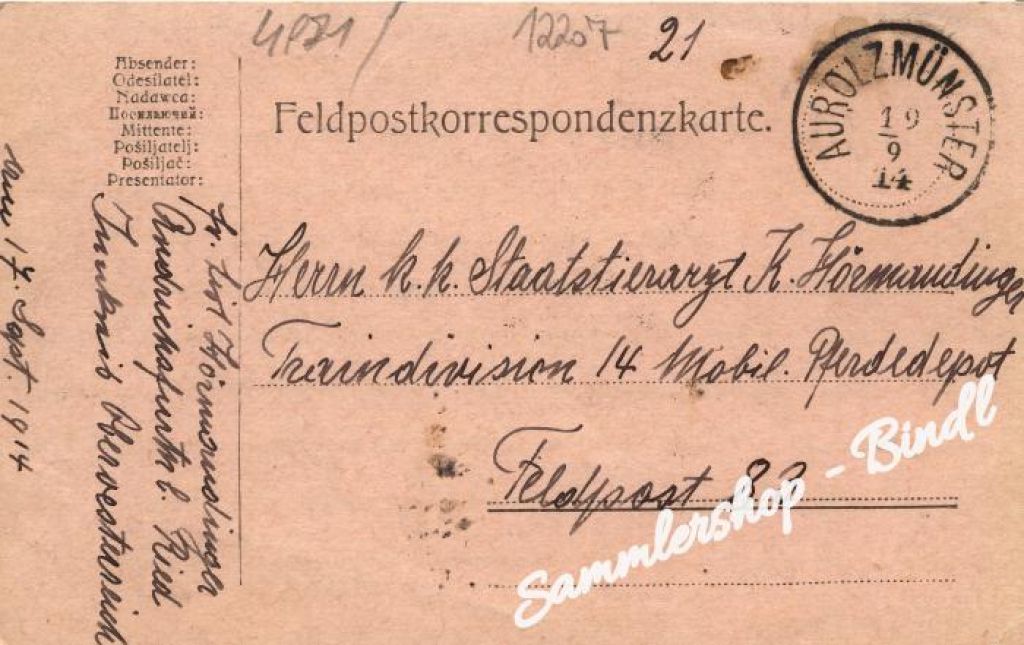 4871/
12207
21
Absender:
Odesílatel:
Nadawca:
Посилаючий:
Mittente:
Pošiljatelj:
Pošiljač:
Presentator:
Feldpostkorrespondenzkarte.
AUROLZMÜNSTER
19
9
14
Herrn k. k. Staatstierarzt K. Hörmandinger
Traindivision 14 Mobil. Pferdedepot
Feldpost 82
Hörmandinger
Andrichsfurth b. Ried
Innkreis Oberösterreich
am 17. Sept. 1914
Sammlershop - Bindl